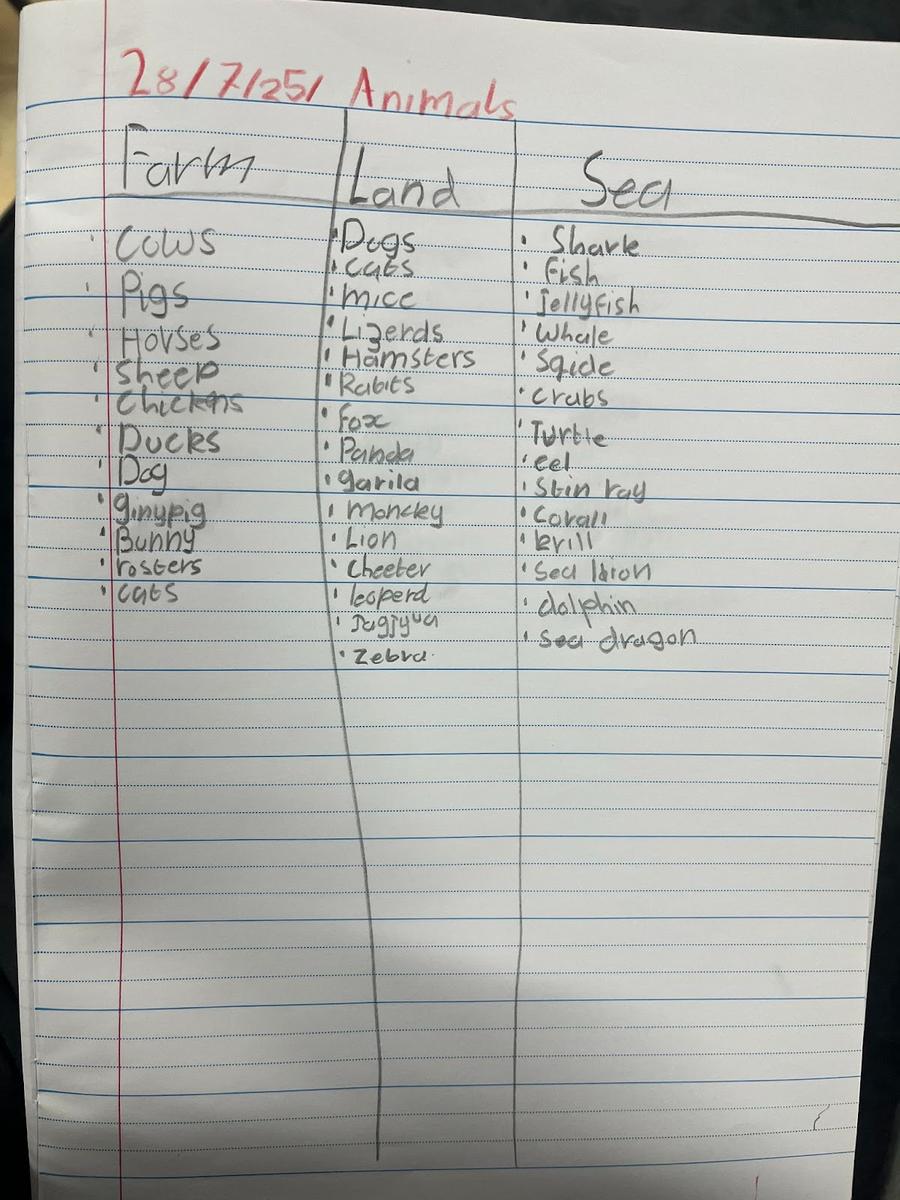 28/7/25/ Animals
Farm
Cows
Pigs
Horses
Sheep
Chickens
Ducks
Dog
ginypig
Bunny
rosters
cats
Land
Dogs
cats
mice
Lizerds
Hamsters
Rabits
fox
Panda
garila
monckey
Lion
cheeter
leoperd
Jagjyua
Zebra.
Sea
Shark
fish
Jellyfish
Whale
Sqide
crabs
Turtle
eel
Stin ray
Corall
krill
Sea lion
dolphin
sea dragon